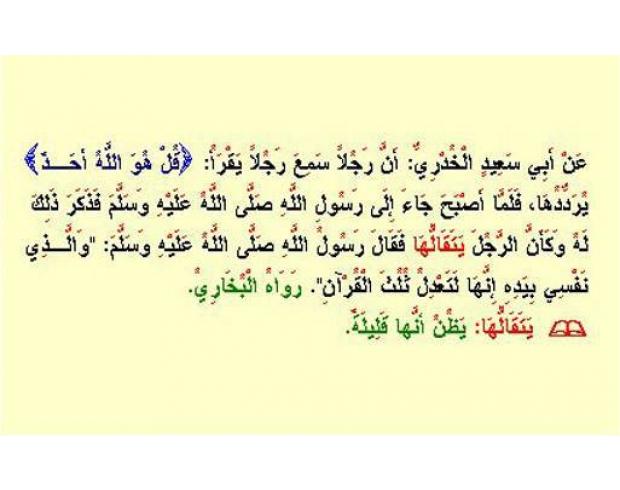 عَنْ أَبِي سَعِيدٍ الْخُدْرِيِّ: أَنَّ رَجُلاً سَمِعَ رَجُلاً يَقْرَأُ: ﴿قُلْ هُوَ اللَّهُ أَحَــدٌ﴾
يُرَدِّدُهَا، فَلَمَّا أَصْبَحَ جَاءَ إِلَى رَسُولِ اللَّهِ صَلَّى اللَّهُ عَلَيْهِ وَسَلَّمَ فَذَكَرَ ذَلِكَ
لَهُ وَكَأَنَّ الرَّجُلَ يَتَقَالُّهَا فَقَالَ رَسُولُ اللَّهِ صَلَّى اللَّهُ عَلَيْهِ وَسَلَّمَ: "وَالَّــذِي
نَفْسِي بِيَدِهِ إِنَّهَا لَتَعْدِلُ ثُلُثَ الْقُرْآنِ". رَوَاهُ الْبُخَارِيُّ.
يَتَقَالُّهَا: يَظُنُّ أَنَّها قَلِيلَةٌ.